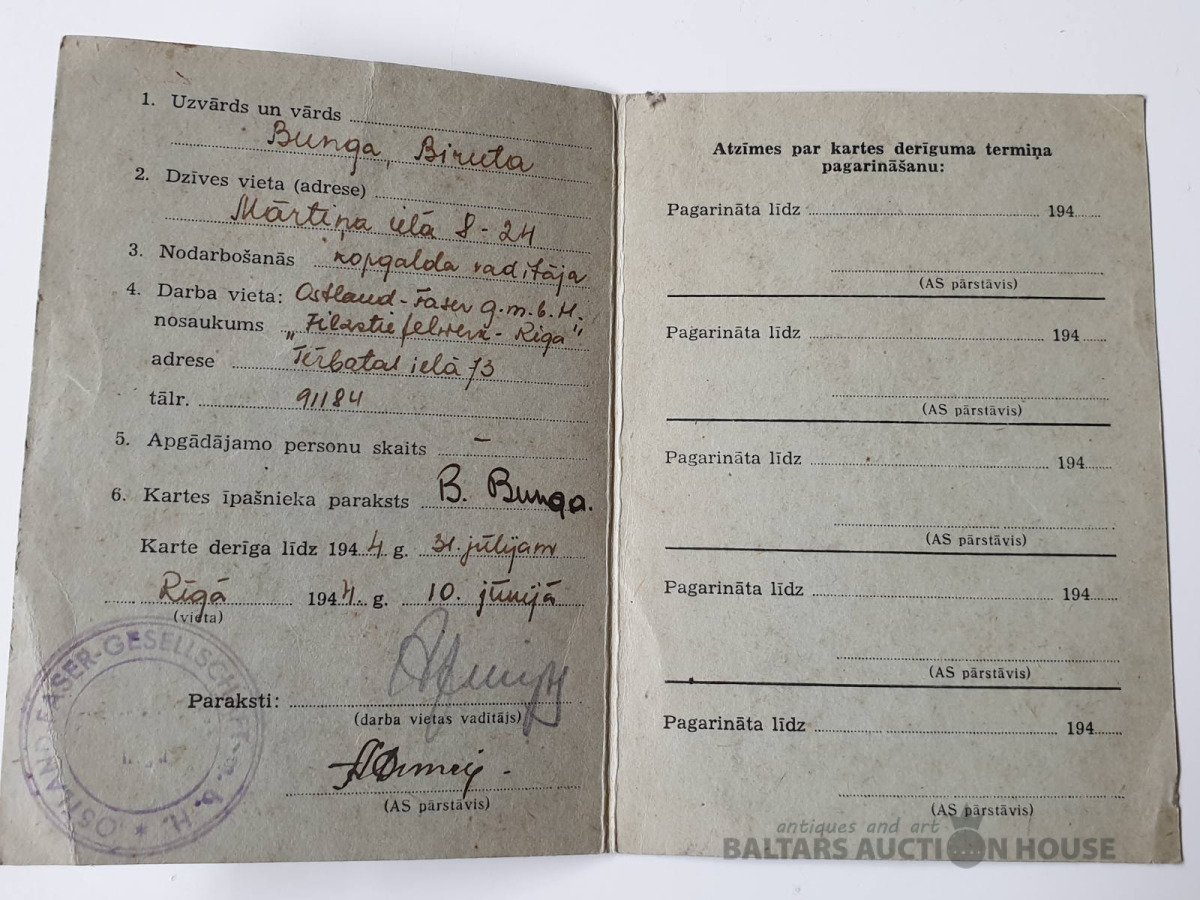 1. Uzvārds un vārds
Bunga, Biruta
2. Dzīves vieta (adrese)
Mārtiņa ielā 8-24
3. Nodarbošanās kopgalda vadītāja
4. Darba vieta: Ostland-Faser g.m.b.H.
nosaukums "Filzstiefelwerk-Riga"
adrese Tērbatas ielā 73
tālr. 91184
5. Apgādājamo personu skaits –
6. Kartes īpašnieka paraksts B. Bunga.
Karte derīga līdz 1944. g. 31. jūlijam
Rīgā 1944. g. 10. jūnijā
(vieta)
OSTLAND FASER-GESELLSCHAFT m. b. H. *
Paraksti:
(darba vietas vadītājs)
(AS pārstāvis)
Atzīmes par kartes derīguma termiņa
pagarināšanu:
Pagarināta līdz 194
(AS pārstāvis)
Pagarināta līdz 194
(AS pārstāvis)
Pagarināta līdz 194
(AS pārstāvis)
Pagarināta līdz 194
(AS pārstāvis)
Pagarināta līdz 194
(AS pārstāvis)
antiques and art
BALTARS AUCTION HOUSE